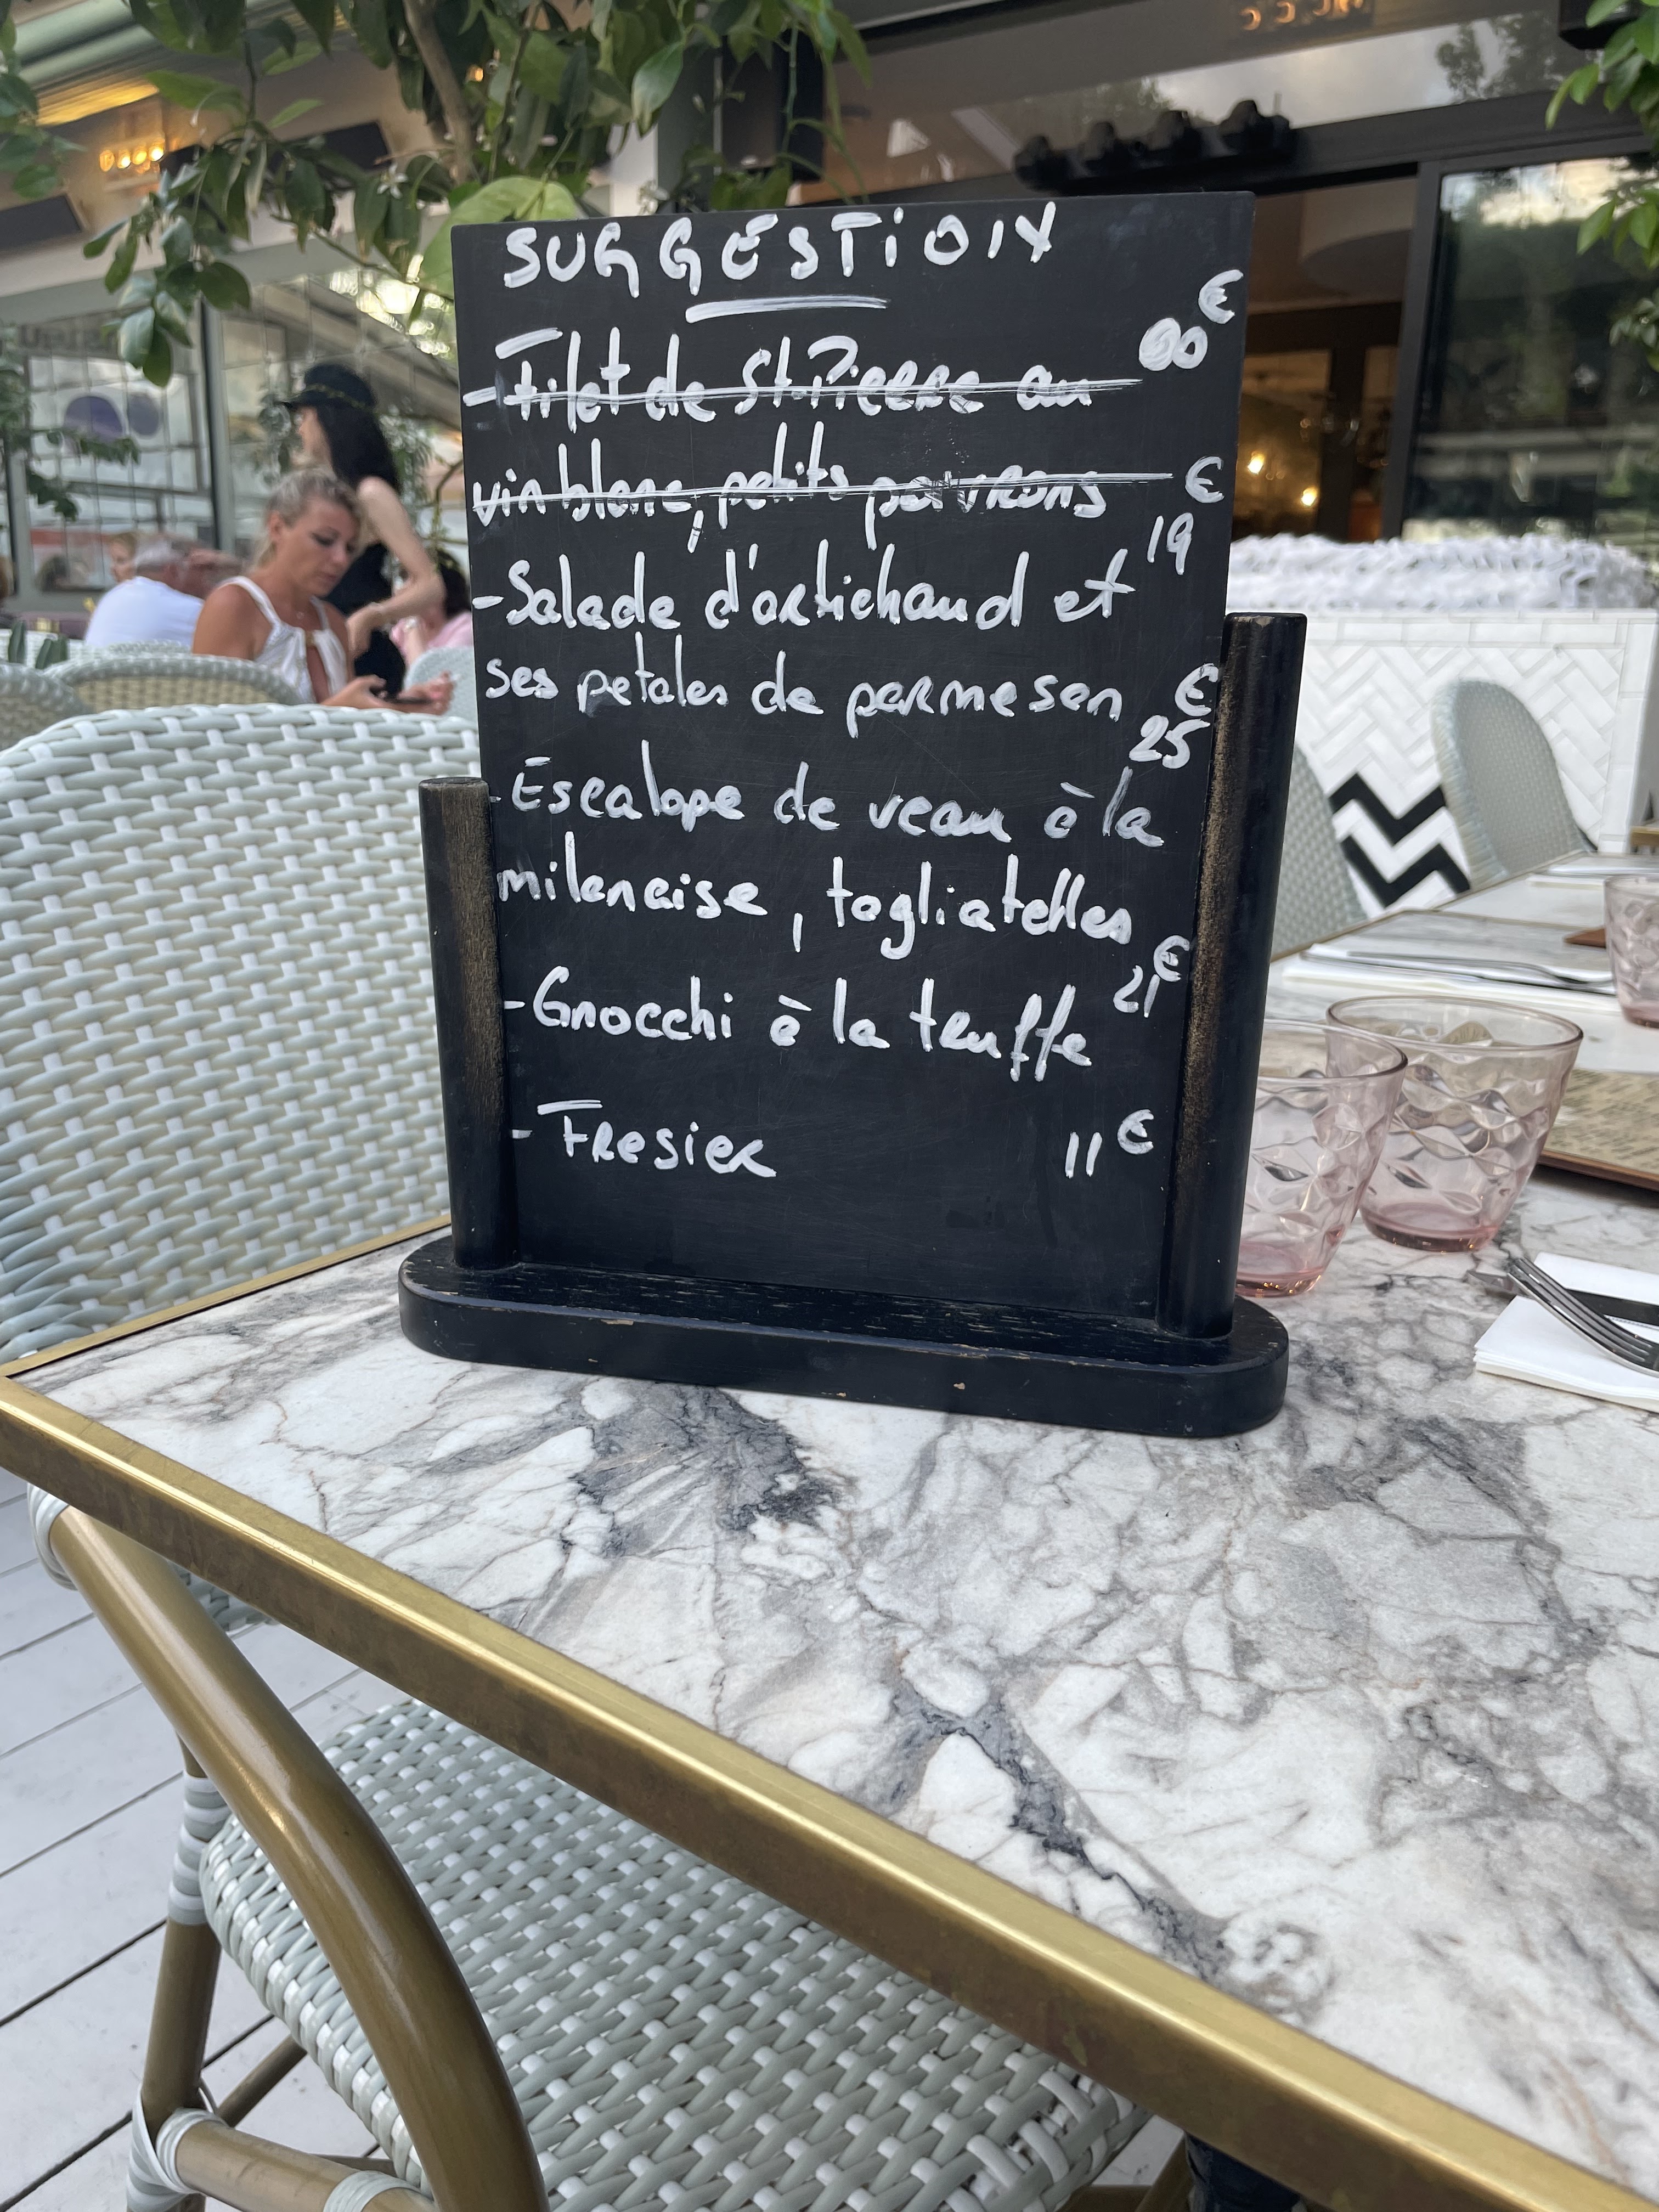 SUGGESTION
- Filet de St Pierre au 00€
vin blanc, petits poivrons
- Salade d'artichaud et 19€
ses petales de parmesan
- Escalope de veau à la 25€
milanaise, tagliatelles
- Gnocchi à la truffe 21€
- Fresier 11€